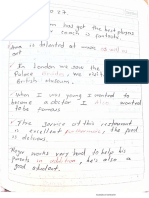 27
has got the best players
coach is fantastic
is talented at music as well as
art
In London we saw the
Palace Besides, we visit
British Museum.
When I was young I wanted to
become a doctor I also wanted
to become
The service at this restaurant
is excellent Furthermore, the food
is delicious.
Roger works very hard to help his
parents in addition, he's also a
good student.